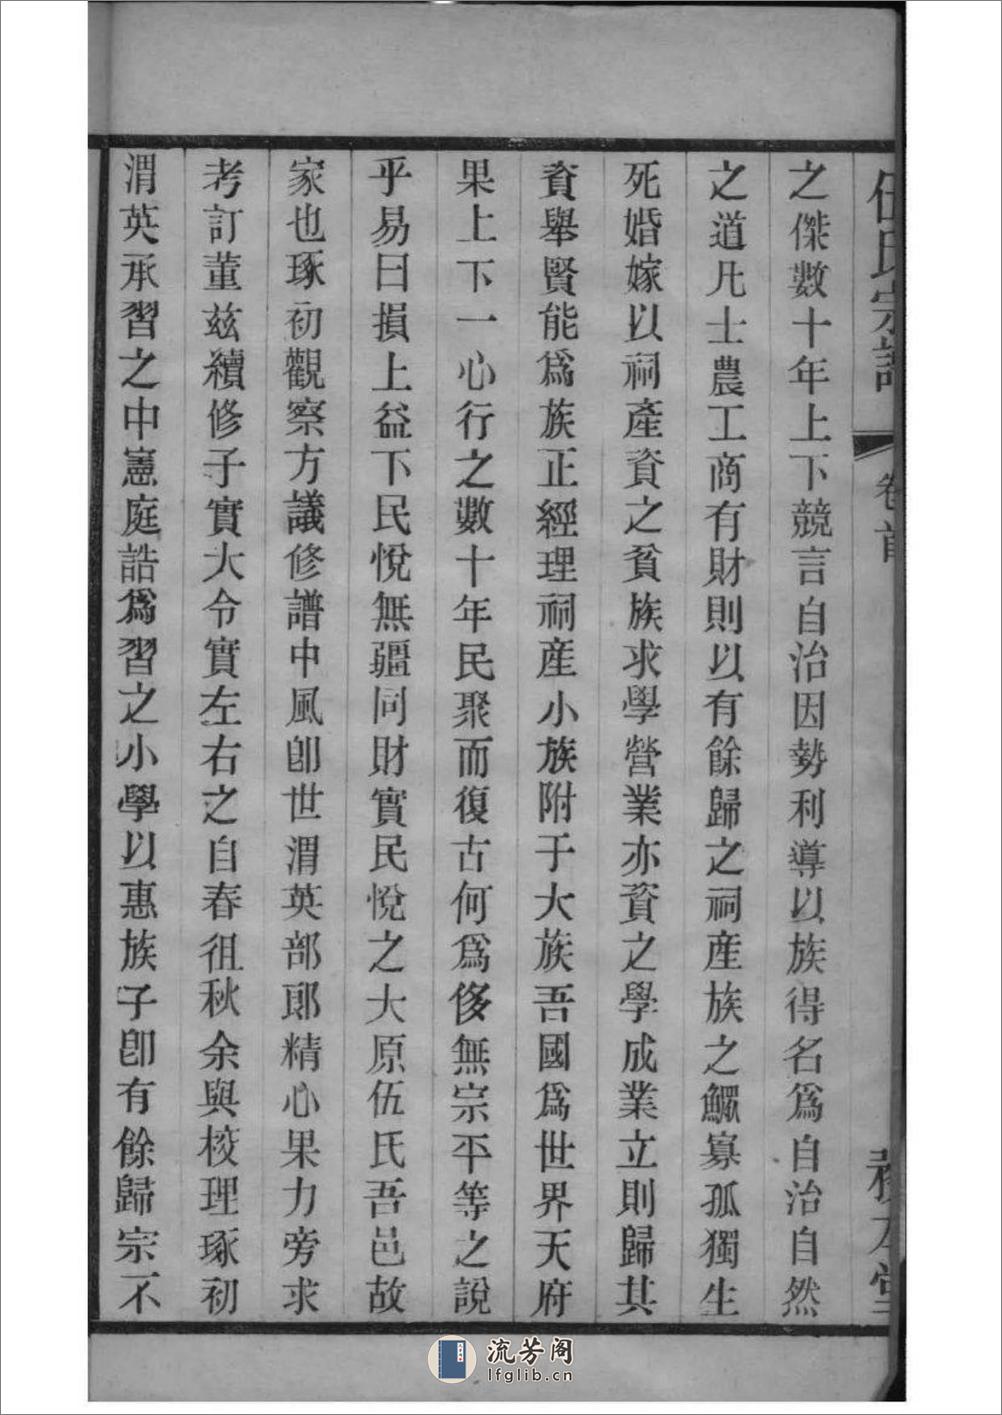 伍氏宗譜 卷首
之傑數十年上下競言自治因勢利導以族得名爲自治自然
之道凡士農工商有財則以有餘歸之祠產族之鰥寡孤獨生
死婚嫁以祠產資之貧族求學營業亦資之學成業立則歸其
資舉賢能爲族正經理祠產小族附于大族吾國爲世界天府
果上下一心行之數十年民聚而復古何爲侈無宗平等之說
乎易曰損上益下民悅無疆同財實民悅之大原伍氏吾邑故
家也琢初觀察方議修譜中風卽世渭英部郎精心果力旁求
考訂董茲續修子實大令實左右之自春徂秋余與校理琢初
渭英承習之中憲庭誥爲習之小學以惠族子卽有餘歸宗不
流芳阁
lfglib.cn